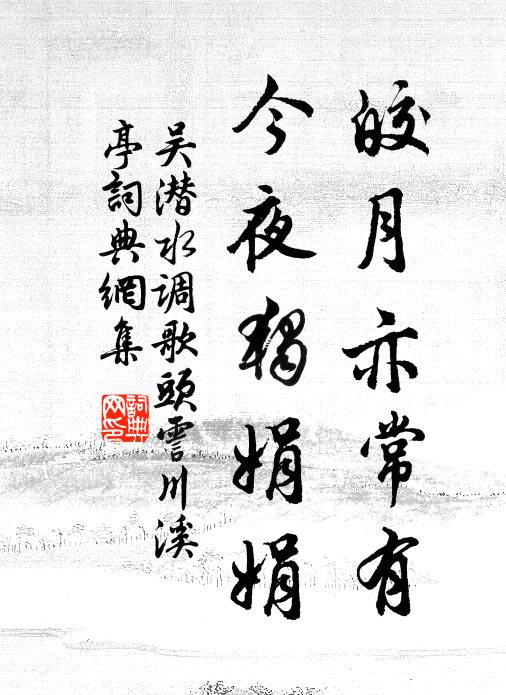 皎月亦常有
今夜獨娟娟
吴潜水调歌頭霅川溪
亭詞典網集
詞典網印